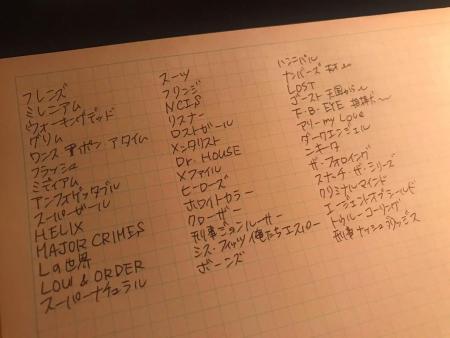 フレンズ
ミレニアム
ウォーキングデッド
グリム
ワンス アポン ア タイム
フラッシュ
ミディアム
アンフォゲッタブル
スーパーガール
HELIX
MAJOR CRIMES
Lの世界
LOW & ORDER
スーパーナチュラル
スーツ
フリンジ
NCIS
リスナー
ロストガール
メンタリスト
Dr. HOUSE
Xファイル
ヒーローズ
ホワイトカラー
クローザー
刑事ジョン・ルーサー
ミスフィッツ 俺たちエスパー
ボーンズ
ハンニバル
ナンバーズ
LOST
ゴースト 天国から〜
F・B・EYE
アリー my Love
ダークエンジェル
ニキータ
ザ・フォロイング
スナーチ・ザ・シリーズ
クリミナルマインド
エージェントオブシールド
トゥルーコーリング
刑事ナッシュ・ブリッジス